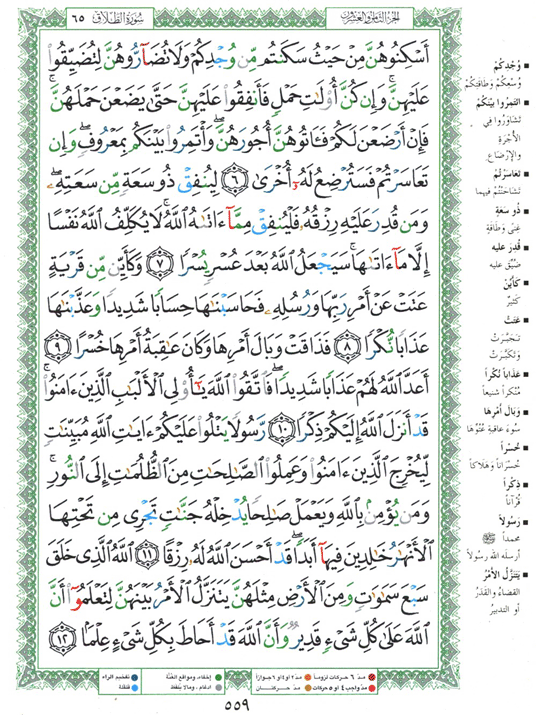 الجزء الثامن والعشرون
سورة الطلاق
٦٥
أَسْكِنُوهُنَّ مِنْ حَيْثُ سَكَنتُم مِّن وُجْدِكُمْ وَلَا تُضَآرُّوهُنَّ لِتُضَيِّقُوا۟
عَلَيْهِنَّ ۚ وَإِن كُنَّ أُو۟لَٰتِ حَمْلٍ فَأَنفِقُوا۟ عَلَيْهِنَّ حَتَّىٰ يَضَعْنَ حَمْلَهُنَّ ۚ
فَإِنْ أَرْضَعْنَ لَكُمْ فَـَٔاتُوهُنَّ أُجُورَهُنَّ ۖ وَأْتَمِرُوا۟ بَيْنَكُم بِمَعْرُوفٍ ۖ وَإِن
تَعَاسَرْتُمْ فَسَتُرْضِعُ لَهُۥٓ أُخْرَىٰ ٦ لِيُنفِقْ ذُو سَعَةٍ مِّن سَعَتِهِۦ ۖ
وَمَن قُدِرَ عَلَيْهِ رِزْقُهُۥ فَلْيُنفِقْ مِمَّآ ءَاتَىٰهُ ٱللَّهُ ۚ لَا يُكَلِّفُ ٱللَّهُ نَفْسًا
إِلَّا مَآ ءَاتَىٰهَا ۚ سَيَجْعَلُ ٱللَّهُ بَعْدَ عُسْرٍ يُسْرًا ٧ وَكَأَيِّن مِّن قَرْيَةٍ
عَتَتْ عَنْ أَمْرِ رَبِّهَا وَرُسُلِهِۦ فَحَاسَبْنَٰهَا حِسَابًا شَدِيدًا وَعَذَّبْنَٰهَا
عَذَابًا نُّكْرًا ٨ فَذَاقَتْ وَبَالَ أَمْرِهَا وَكَانَ عَٰقِبَةُ أَمْرِهَا خُسْرًا ٩
أَعَدَّ ٱللَّهُ لَهُمْ عَذَابًا شَدِيدًا ۖ فَٱتَّقُوا۟ ٱللَّهَ يَٰٓأُو۟لِى ٱلْأَلْبَٰبِ ٱلَّذِينَ ءَامَنُوا۟ ۚ
قَدْ أَنزَلَ ٱللَّهُ إِلَيْكُمْ ذِكْرًا ١٠ رَّسُولًا يَتْلُوا۟ عَلَيْكُمْ ءَايَٰتِ ٱللَّهِ مُبَيِّنَٰتٍ
لِّيُخْرِجَ ٱلَّذِينَ ءَامَنُوا۟ وَعَمِلُوا۟ ٱلصَّٰلِحَٰتِ مِنَ ٱلظُّلُمَٰتِ إِلَى ٱلنُّورِ ۚ
وَمَن يُؤْمِنۢ بِٱللَّهِ وَيَعْمَلْ صَٰلِحًا يُدْخِلْهُ جَنَّٰتٍ تَجْرِى مِن تَحْتِهَا
ٱلْأَنْهَٰرُ خَٰلِدِينَ فِيهَآ أَبَدًا ۖ قَدْ أَحْسَنَ ٱللَّهُ لَهُۥ رِزْقًا ١١ ٱللَّهُ ٱلَّذِى خَلَقَ
سَبْعَ سَمَٰوَٰتٍ وَمِنَ ٱلْأَرْضِ مِثْلَهُنَّ يَتَنَزَّلُ ٱلْأَمْرُ بَيْنَهُنَّ لِتَعْلَمُوٓا۟ أَنَّ
ٱللَّهَ عَلَىٰ كُلِّ شَىْءٍ قَدِيرٌ وَأَنَّ ٱللَّهَ قَدْ أَحَاطَ بِكُلِّ شَىْءٍ عِلْمًۢا ١٢
وُجْدِكُمْ
وُسْعِكُمْ وَطَاقَتِكُمْ
ائتمروا بينكم
تشاوروا في
الأجرة
والإرضاع
تعاسرتم
تشاححتم فيهما
ذو سعة
غنى وطاقة
قدر عليه
ضيّق عليه
كأيّن
كثير
عتت
تجبّرت
وتكبّرت
عذابا نكرا
منكرا شنيعا
وبال أمرها
سوء عاقبة عتوّها
خسرا
خسرانا وهلاكا
ذكرا
قرآنا
رسولا
محمدا ﷺ
أرسله الله رسولا
يتنزّل الأمر
القضاء والقدر
أو التدبير
مدّ ٦ حركات لزوماً
مدّ ٢ أو ٤ أو ٦ جوازاً
إخفاء، ومواقع الغنّة
تفخيم الراء
مدّ واجب ٤ أو ٥ حركات
مدّ حركتان
ادغام، وما لا يلفظ
قلقلة
٥٥٩